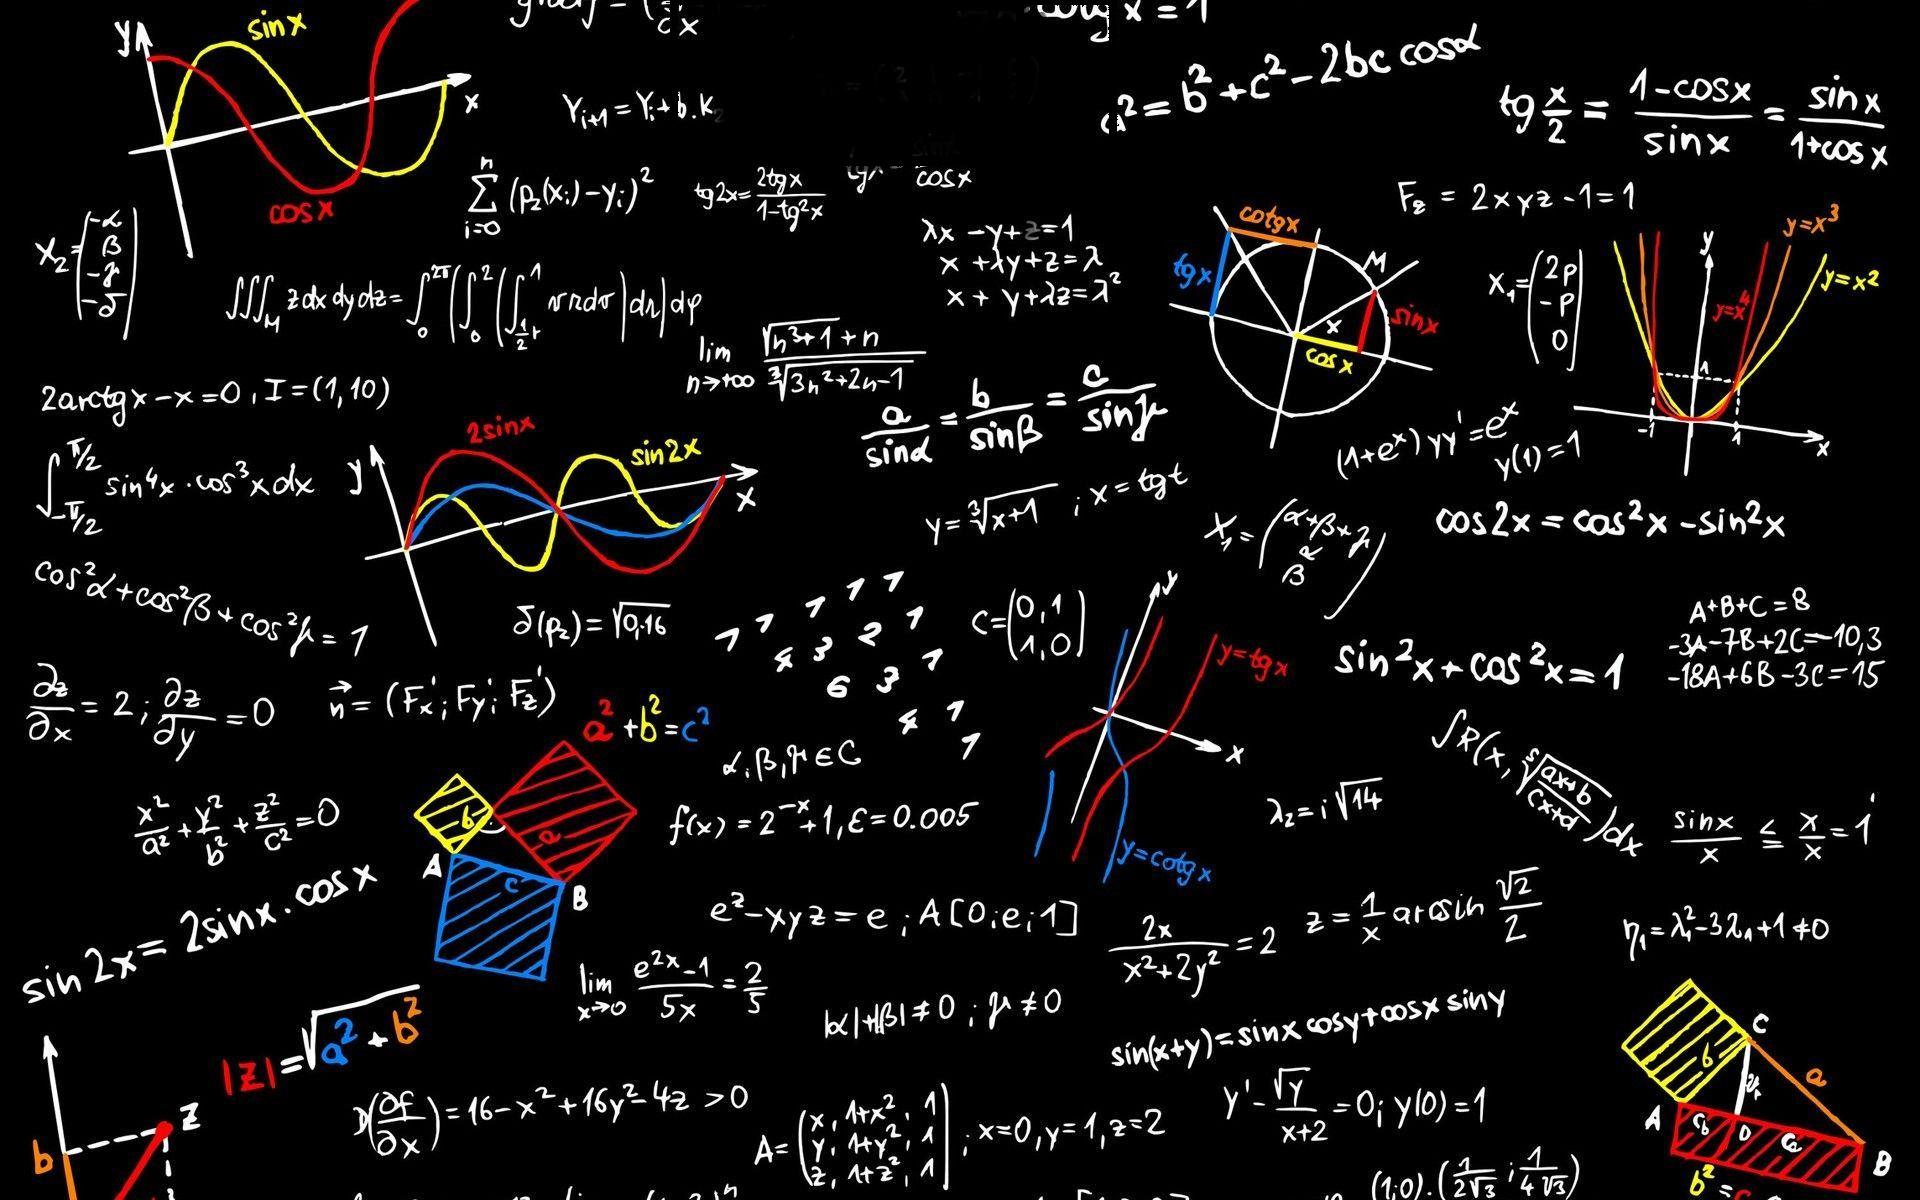 y
sin x
x
cos x
Y_{i+1} = Y_i + b.K_2
a² = b² + c² - 2bc cosα
tg x/2 = (1-cosx)/(sinx) = (sin x)/(1+cos x)
∑_{i=0}^{n} (p₂(x_i) - y_i)²
tg2x = (2tgx)/(1-tg²x)
cosx
F_z = 2xyz - 1 = 1
λx - y + z = 1
x + λy + z = λ
x + y + λz = λ²
X₂ = (-α
β
-γ
-δ)
cotgx
tgx
M
x
sinx
cosx
X₁ = (2p
-p
0)
y
y=x³
y=x²
y=x⁴
1
-1
1
x
∭_M z dx dy dz = ∫_0^{2π} (∫_0^2 (∫_{½r}^1
lim_{n→+∞} (√(n³+1) + n)/(∛(3n²+2n-1))
2arctgx - x = 0, I = (1,10)
a/sinα = b/sinβ = c/sinγ
(1+e^x) yy' = e^x
y(1) = 1
∫_{-π/2}^{π/2} sin⁴x · cos³x dx
y
2sinx
sin2x
x
y = ∛(x+1) ; x = tgt
X₁ = (α+β+γ
α
β)
cos2x = cos²x - sin²x
cos²α + cos²β + cos²γ = 1
δ(p₂) = √0,16
1 1 1 1 1
4 3 2 1
6 3 1
4 1
1
C = (0, 1
1, 0)
y
y=tgx
x
y=cotgx
sin²x + cos²x = 1
A+B+C = 8
-3A-7B+2C = -10,3
-18A+6B-3C = 15
∂z/∂x = 2 ; ∂z/∂y = 0
n⃗ = (Fx'; Fy'; Fz')
a² + b² = c²
b
a
A
c
B
α, β, γ ∈ C
f(x) = 2^{-x} + 1, ε = 0.005
∫R(x, ⁵√((ax+b)/(cx+d))) dx
λ₂ = i√14
sinx/x ≤ x/x = 1
x²/a² + y²/b² + z²/c² = 0
sin2x = 2sinx·cosx
e^z - xyz = e ; A[0;e;1]
2x/(x²+2y²) = 2
z = 1/x arcsin √2/2
η₁ = λ₁² - 3λ₁ + 1 ≠ 0
lim_{x→0} (e^{2x}-1)/(5x) = 2/5
|α|+|β| ≠ 0 ; γ ≠ 0
sin(x+y) = sinx cosy + cosx siny
|z| = √(a² + b²)
z
b
(∂f/∂x) = 16 - x² + 16y² - 4z > 0
A = (x, 1+x², 1
y, 1+y², 1
z, 1+z², 1) ; x=0, y=1, z=2
y' - √y/(x+2) = 0 ; y(0) = 1
C
b
a
A
c_b
D
B
b² =
(1;0).(1/(2√3) ; 1/(4√3))